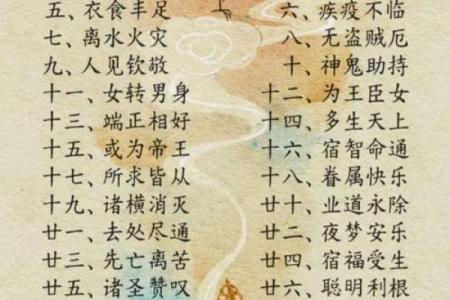 五、衣食丰足 六、疾疫不临
七、离水火灾 八、无盗贼厄
九、人见钦敬 十、神鬼助持
十一、女转男身 十二、为王臣女
十三、端正相好 十四、多生天上
十五、或为帝王 十六、宿智命通
十七、所求皆从 十八、眷属快乐
十九、诸横消灭 二十、业道永除
廿一、去处尽通 廿二、夜梦安乐
廿三、先亡离苦 廿四、宿福受生
廿五、诸圣赞叹 廿六、聪明利根